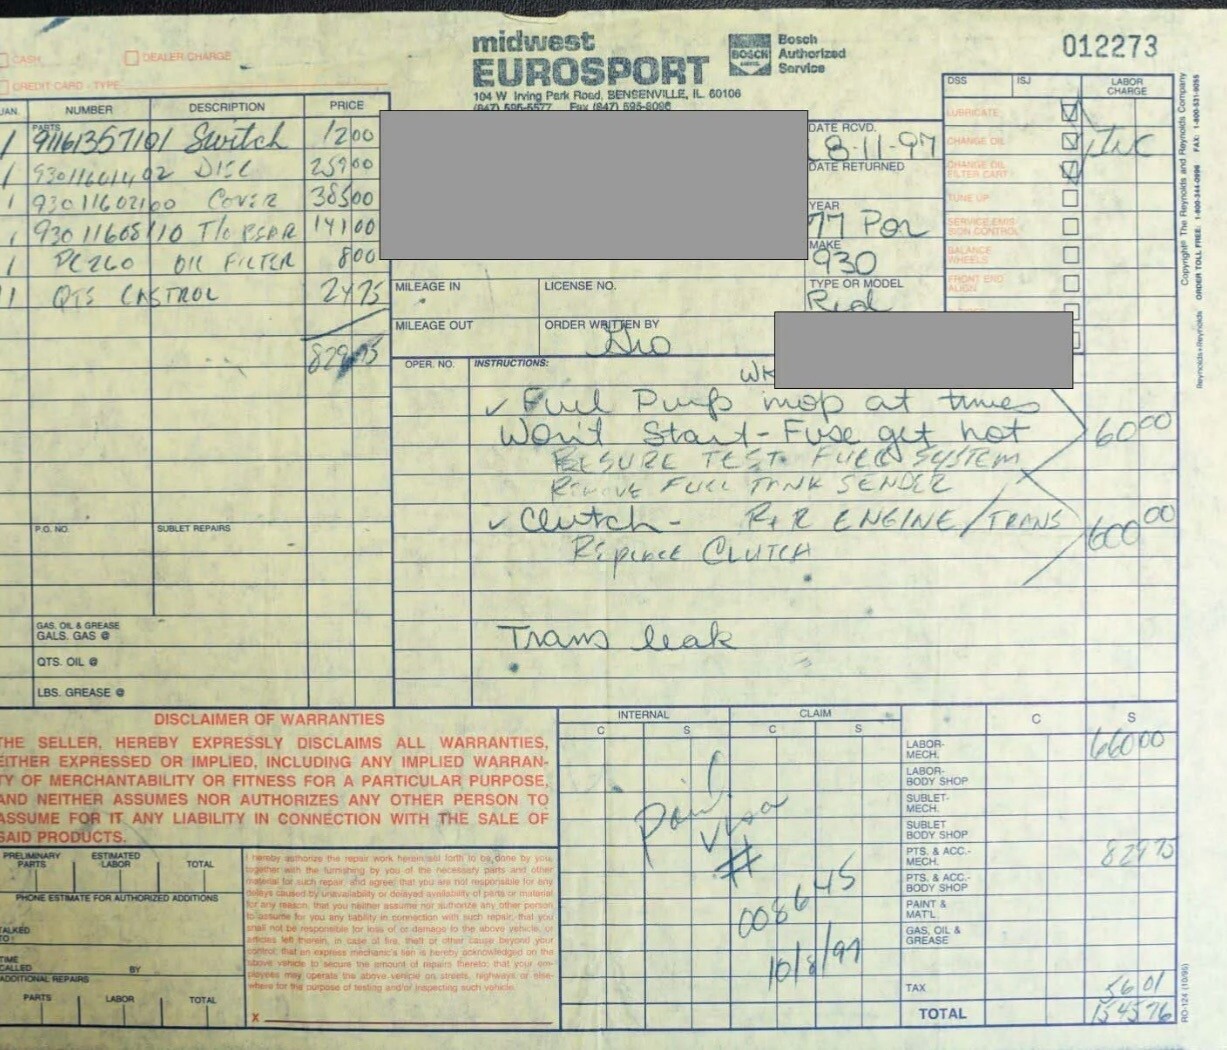 midwest
EUROSPORT
BOSCH
Bosch
Authorized
Service
012273
104 W Irving Park Road, BENSENVILLE, IL. 60106
(847) 595-5577 Fax (847) 595-8096
CASH
DEALER CHARGE
CREDIT CARD - TYPE
QUAN. NUMBER DESCRIPTION PRICE
PARTS
1 91161357101 Switch 12 00
1 93011601402 DISC 259 00
1 93011602100 COVER 385 00
1 93011605110 T/O BEAR 141 00
1 PC260 OIL FILTER 8 00
11 QTS CASTROL 24 75
829 75
DATE RCVD.
8-11-97
DATE RETURNED
YEAR
77 Por
MAKE
930
TYPE OR MODEL
Red
MILEAGE IN
LICENSE NO.
MILEAGE OUT
ORDER WRITTEN BY
DSS ISJ LABOR CHARGE
LUBRICATE
CHANGE OIL INC
CHANGE OIL FILTER CART.
TUNE UP
SERVICE EMISSION CONTROL
BALANCE WHEELS
FRONT END ALIGN
OPER. NO. INSTRUCTIONS:
WK
✓ Fuel Pump inop at times
Won't Start - Fuse get hot 60 00
RESURE TEST FUEL SYSTEM
REMOVE FUEL TANK SENDER
✓ Clutch - R+R ENGINE/TRANS 600 00
Replace CLUTCH
Trans leak
P.O. NO. SUBLET REPAIRS
GAS, OIL & GREASE
GALS. GAS @
QTS. OIL @
LBS. GREASE @
DISCLAIMER OF WARRANTIES
THE SELLER, HEREBY EXPRESSLY DISCLAIMS ALL WARRANTIES,
EITHER EXPRESSED OR IMPLIED, INCLUDING ANY IMPLIED WARRAN-
TY OF MERCHANTABILITY OR FITNESS FOR A PARTICULAR PURPOSE,
AND NEITHER ASSUMES NOR AUTHORIZES ANY OTHER PERSON TO
ASSUME FOR IT ANY LIABILITY IN CONNECTION WITH THE SALE OF
SAID PRODUCTS.
PRELIMINARY PARTS ESTIMATED LABOR TOTAL
PHONE ESTIMATE FOR AUTHORIZED ADDITIONS
TALKED TO:
TIME CALLED BY
ADDITIONAL REPAIRS
PARTS LABOR TOTAL
I hereby authorize the repair work herein set forth to be done by you,
together with the furnishing by you of the necessary parts and other
material for such repair, and agree; that you are not responsible for any
delays caused by unavailability or delayed availability of parts or material
for any reason; that you neither assume nor authorize any other person
to assume for you any liability in connection with such repair; that you
shall not be responsible for loss of or damage to the above vehicle, or
articles left therein, in case of fire, theft or other cause beyond your
control; that an express mechanic's lien is hereby acknowledged on the
above vehicle to secure the amount of repairs thereto; that your em-
ployees may operate the above vehicle on streets, highways or else-
where for the purpose of testing and/or inspecting such vehicle.
X
INTERNAL CLAIM
C S C S
Paid
Visa
#
008645
10/8/97
C S
LABOR-MECH. 660 00
LABOR-BODY SHOP
SUBLET-MECH.
SUBLET BODY SHOP
PTS. & ACC.-MECH. 829 75
PTS. & ACC.-BODY SHOP
PAINT & MAT'L.
GAS, OIL & GREASE
TAX 56 01
TOTAL 1545 76
Copyright® The Reynolds and Reynolds Company
ORDER TOLL FREE: 1-800-344-0996 FAX: 1-800-531-9055
Reynolds+Reynolds
RO-124 (10/95)